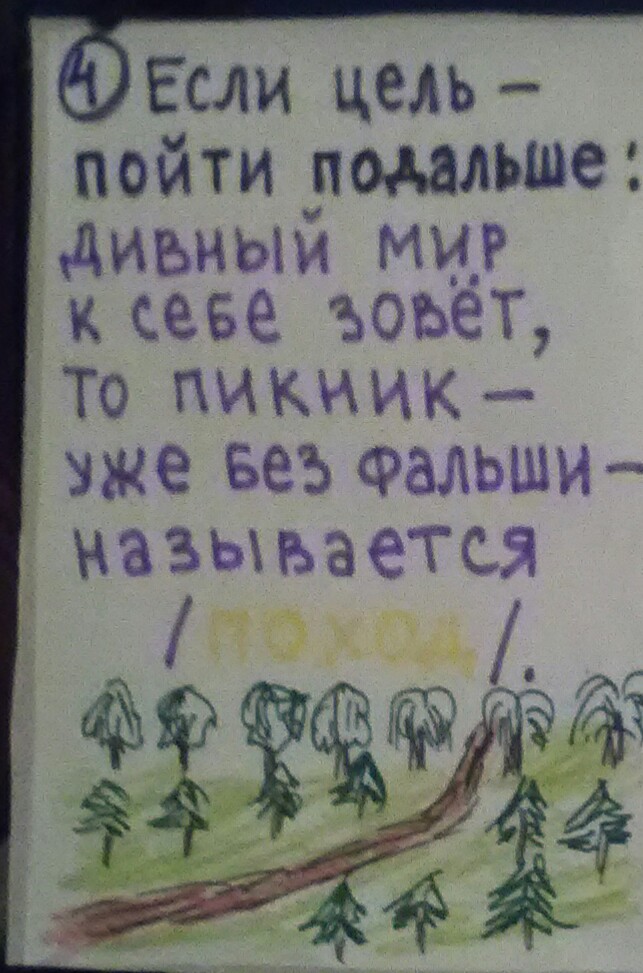 4 Если цель –
пойти подальше:
дивный мир
к себе зовёт,
то пикник –
уже без фальши –
называется
/поход/.